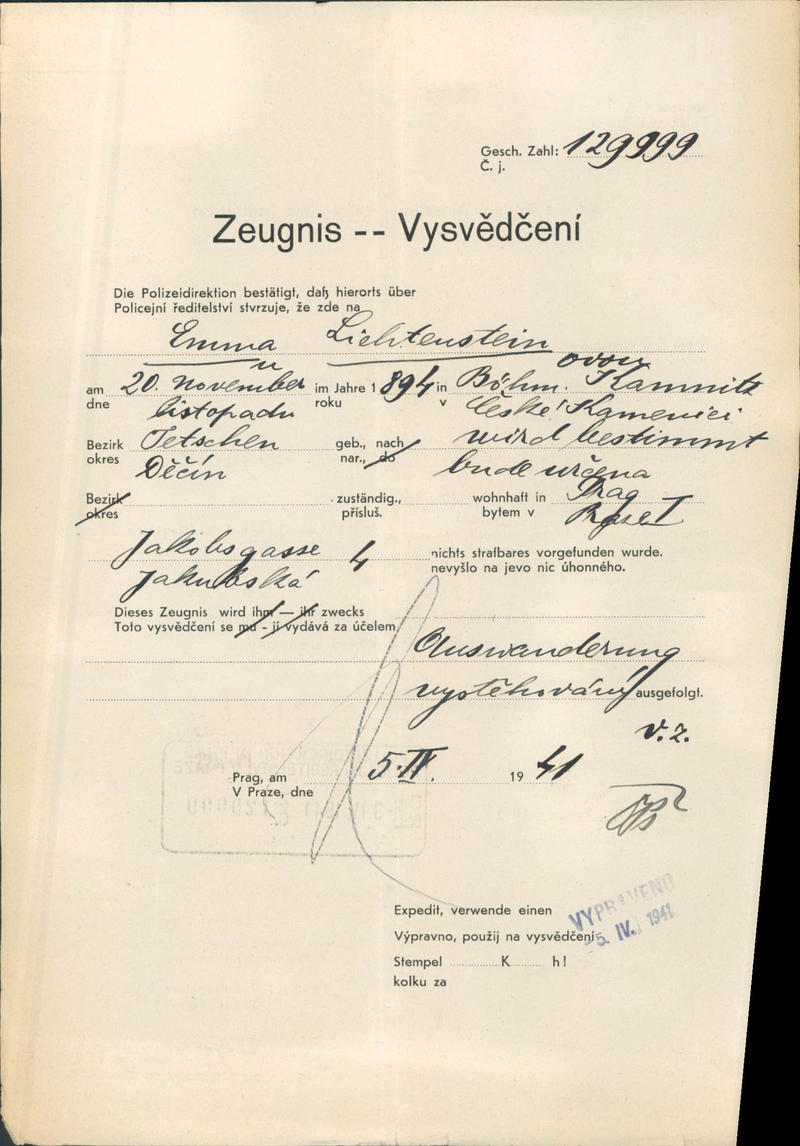 Gesch. Zahl: 129999
Č. j.
Zeugnis -- Vysvědčení
Die Polizeidirektion bestätigt, daß hierorts über
Policejní ředitelství stvrzuje, že zde na
Emmu Lichtenstein
ovou
am 20. November im Jahre 1894 in Böhm. Kamnitz
dne listopadu roku v České Kamenici
Bezirk Tetschen geb., nach wird bestimmt
okres Děčín nar., do bude určena
Bezirk zuständig., wohnhaft in Prag
okres přísluš. bytem v Praze I
Jakobsgasse 4 nichts strafbares vorgefunden wurde.
Jakubská nevyšlo na jevo nic úhonného.
Dieses Zeugnis wird ihm — ihr zwecks
Toto vysvědčení se mu - jí vydává za účelem
Auswanderung
vystěhování ausgefolgt.
V. z.
Prag, am 5. IV. 1941
V Praze, dne
Expedit, verwende einen
Výpravno, použij na vysvědčení
Stempel K h!
kolku za
VYPRAVENO
5. IV. 1941